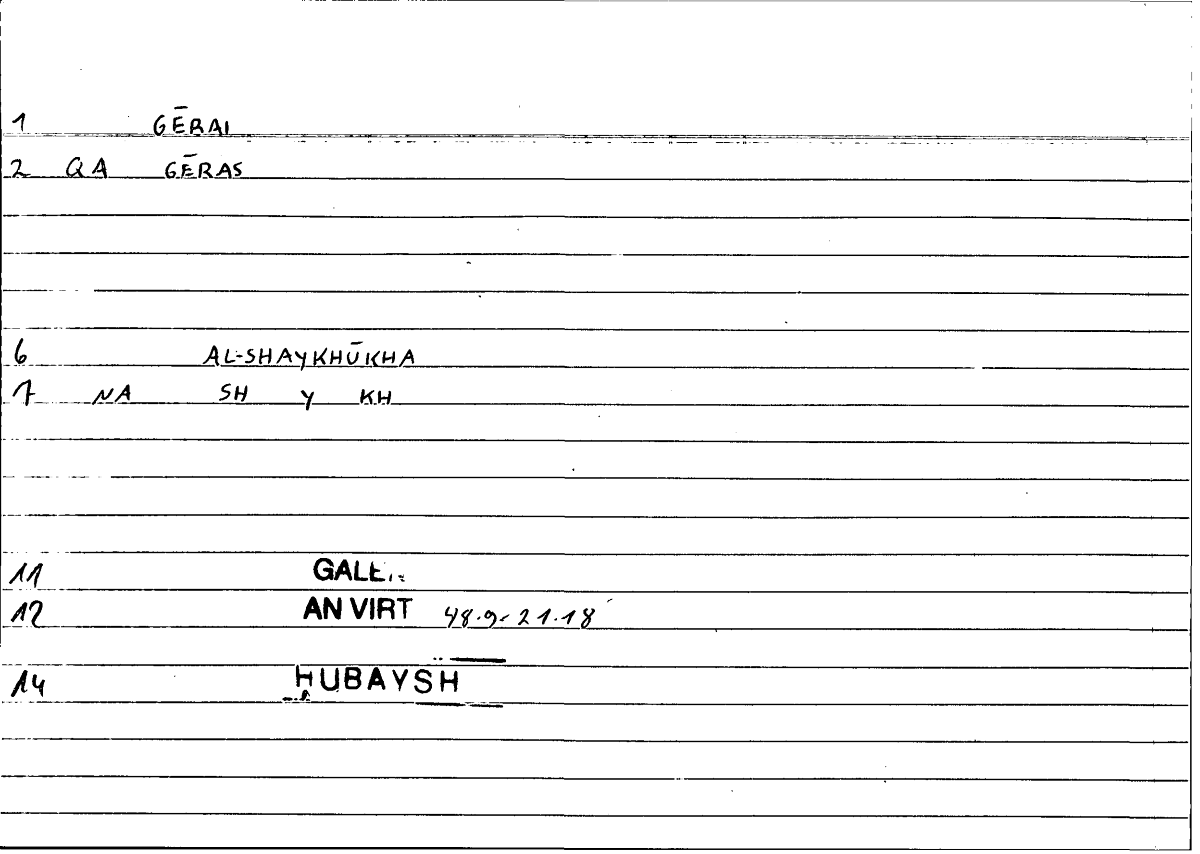 1 GĒRAI
2 QA GĒRAS
6 AL-SHAYKHŪKHA
7 NA SH Y KH
11
12 AN VIRT 48.9-21.18
14 HUBAYSH